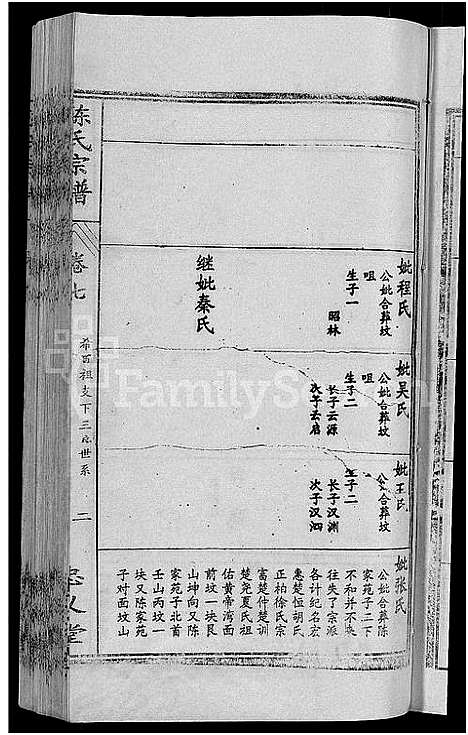 妣程氏
公妣合葬坟
咀
生子一
昭林
继妣秦氏
妣吴氏
公妣合葬坟
咀
生子二
长子云源
次子云启
妣王氏
公妣合葬坟
生子二
长子汉渊
次子汉泗
妣张氏
公妣合葬陈
家苑子二下
不和并不来
往失了宗派
各计纪名宏
惠楚恒胡氏
正柏徐氏宗
富楚仲楚训
楚尧夏氏祖
佑黄帝湾面
前坟一块艮
山坤向又陈
家苑子北首
壬山丙坟一
块又陈家苑
子对面坟山
陈氏宗谱
卷七
世系
二
FamilySearch